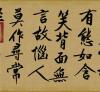 有愁如含
笑背面無
言故惱人
莫作尋常